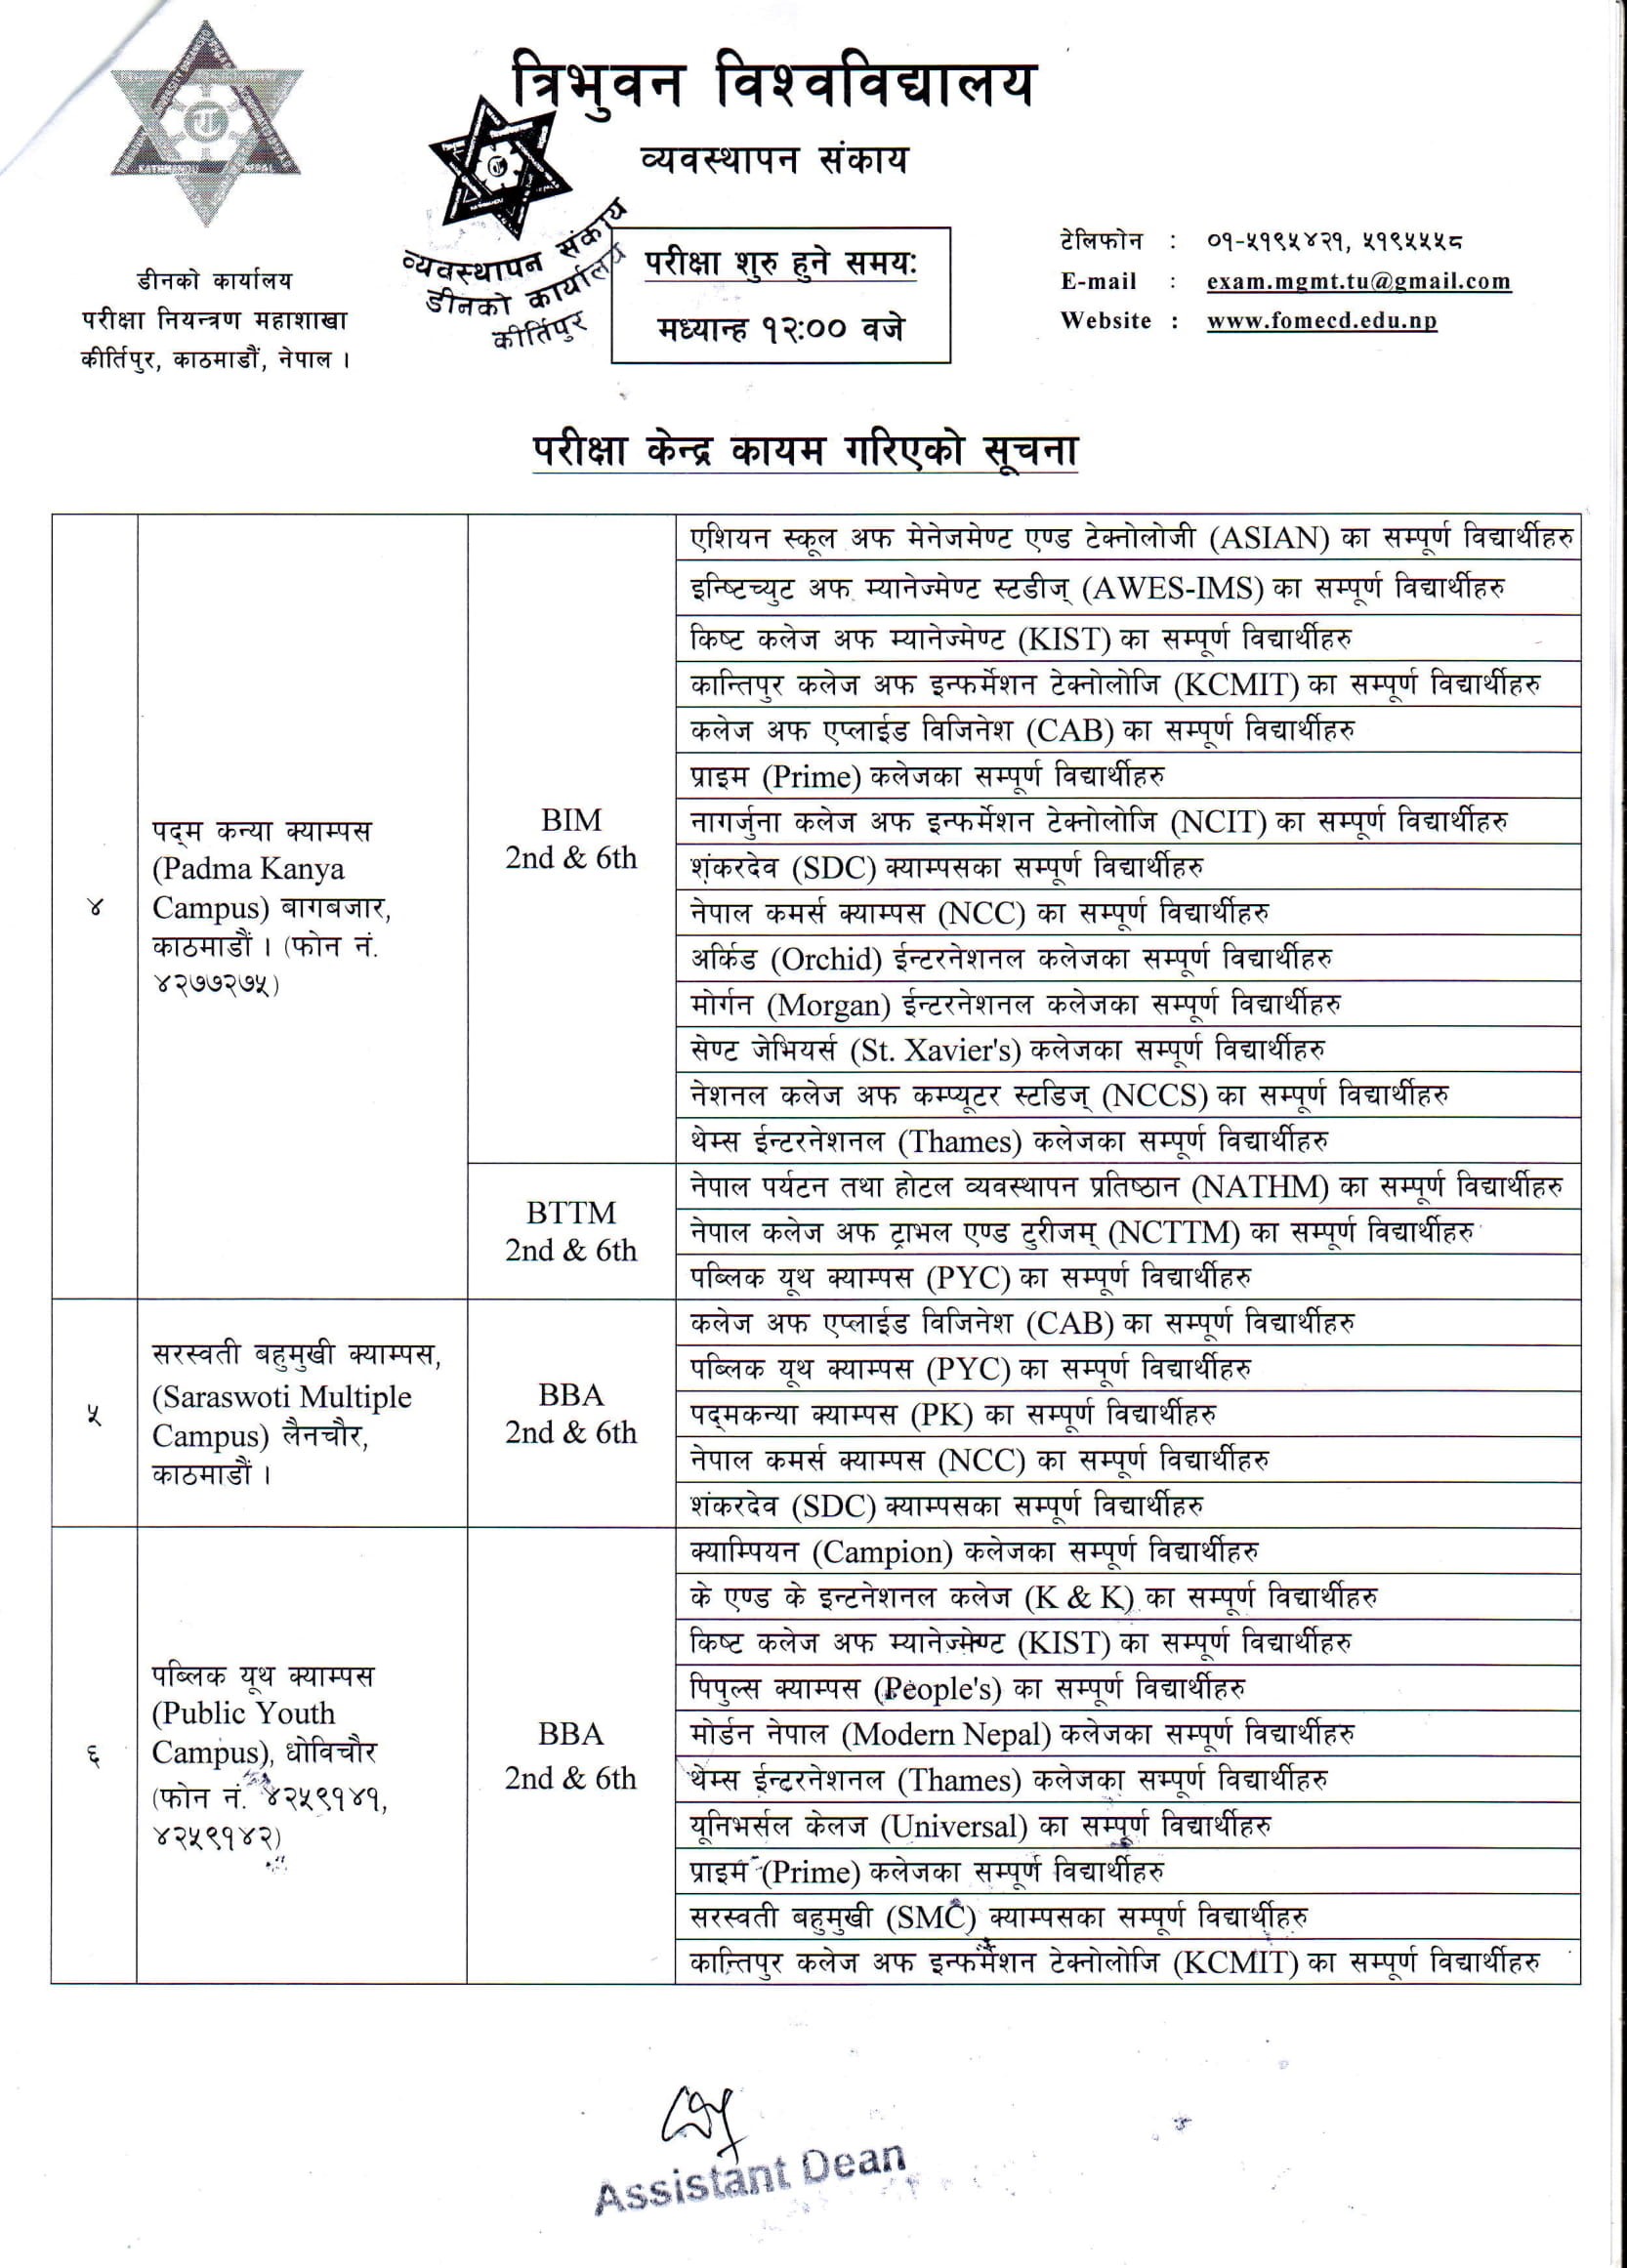 त्रिभुवन विश्वविद्यालय
व्यवस्थापन संकाय
व्यवस्थापन संकाय
डीनको कार्यालय
कीर्तिपुर
डीनको कार्यालय
परीक्षा नियन्त्रण महाशाखा
कीर्तिपुर, काठमाडौं, नेपाल ।
परीक्षा शुरु हुने समयः
मध्यान्ह १२:०० वजे
टेलिफोन : ०१-५१९५४२१, ५१९५५५८
E-mail : exam.mgmt.tu@gmail.com
Website : www.fomecd.edu.np
परीक्षा केन्द्र कायम गरिएको सूचना
४
पद्म कन्या क्याम्पस
(Padma Kanya
Campus) बागबजार,
काठमाडौं । (फोन नं.
४२७७२७५)
BIM
2nd & 6th
एशियन स्कूल अफ मेनेजमेण्ट एण्ड टेक्नोलोजी (ASIAN) का सम्पूर्ण विद्यार्थीहरु
इन्ष्टिच्युट अफ म्यानेज्मेण्ट स्टडीज् (AWES-IMS) का सम्पूर्ण विद्यार्थीहरु
किष्ट कलेज अफ म्यानेज्मेण्ट (KIST) का सम्पूर्ण विद्यार्थीहरु
कान्तिपुर कलेज अफ इन्फर्मेशन टेक्नोलोजि (KCMIT) का सम्पूर्ण विद्यार्थीहरु
कलेज अफ एप्लाईड विजिनेश (CAB) का सम्पूर्ण विद्यार्थीहरु
प्राइम (Prime) कलेजका सम्पूर्ण विद्यार्थीहरु
नागर्जुना कलेज अफ इन्फर्मेशन टेक्नोलोजि (NCIT) का सम्पूर्ण विद्यार्थीहरु
शंकरदेव (SDC) क्याम्पसका सम्पूर्ण विद्यार्थीहरु
नेपाल कमर्स क्याम्पस (NCC) का सम्पूर्ण विद्यार्थीहरु
अर्किड (Orchid) ईन्टरनेशनल कलेजका सम्पूर्ण विद्यार्थीहरु
मोर्गन (Morgan) ईन्टरनेशनल कलेजका सम्पूर्ण विद्यार्थीहरु
सेण्ट जेभियर्स (St. Xavier's) कलेजका सम्पूर्ण विद्यार्थीहरु
नेशनल कलेज अफ कम्प्यूटर स्टडिज् (NCCS) का सम्पूर्ण विद्यार्थीहरु
थेम्स ईन्टरनेशनल (Thames) कलेजका सम्पूर्ण विद्यार्थीहरु
BTTM
2nd & 6th
नेपाल पर्यटन तथा होटल व्यवस्थापन प्रतिष्ठान (NATHM) का सम्पूर्ण विद्यार्थीहरु
नेपाल कलेज अफ ट्राभल एण्ड टुरीजम् (NCTTM) का सम्पूर्ण विद्यार्थीहरु
पब्लिक यूथ क्याम्पस (PYC) का सम्पूर्ण विद्यार्थीहरु
५
सरस्वती बहुमुखी क्याम्पस,
(Saraswoti Multiple
Campus) लैनचौर,
काठमाडौं ।
BBA
2nd & 6th
कलेज अफ एप्लाईड विजिनेश (CAB) का सम्पूर्ण विद्यार्थीहरु
पब्लिक यूथ क्याम्पस (PYC) का सम्पूर्ण विद्यार्थीहरु
पद्मकन्या क्याम्पस (PK) का सम्पूर्ण विद्यार्थीहरु
नेपाल कमर्स क्याम्पस (NCC) का सम्पूर्ण विद्यार्थीहरु
शंकरदेव (SDC) क्याम्पसका सम्पूर्ण विद्यार्थीहरु
६
पब्लिक यूथ क्याम्पस
(Public Youth
Campus), धोविचौर
(फोन नं. ४२५९१४१,
४२५९१४२)
BBA
2nd & 6th
क्याम्पियन (Campion) कलेजका सम्पूर्ण विद्यार्थीहरु
के एण्ड के इन्टनेशनल कलेज (K & K) का सम्पूर्ण विद्यार्थीहरु
किष्ट कलेज अफ म्यानेज्मेण्ट (KIST) का सम्पूर्ण विद्यार्थीहरु
पिपुल्स क्याम्पस (People's) का सम्पूर्ण विद्यार्थीहरु
मोर्डन नेपाल (Modern Nepal) कलेजका सम्पूर्ण विद्यार्थीहरु
थेम्स ईन्टरनेशनल (Thames) कलेजका सम्पूर्ण विद्यार्थीहरु
यूनिभर्सल केलज (Universal) का सम्पूर्ण विद्यार्थीहरु
प्राइम (Prime) कलेजका सम्पूर्ण विद्यार्थीहरु
सरस्वती बहुमुखी (SMC) क्याम्पसका सम्पूर्ण विद्यार्थीहरु
कान्तिपुर कलेज अफ इन्फर्मेशन टेक्नोलोजि (KCMIT) का सम्पूर्ण विद्यार्थीहरु
Assistant Dean